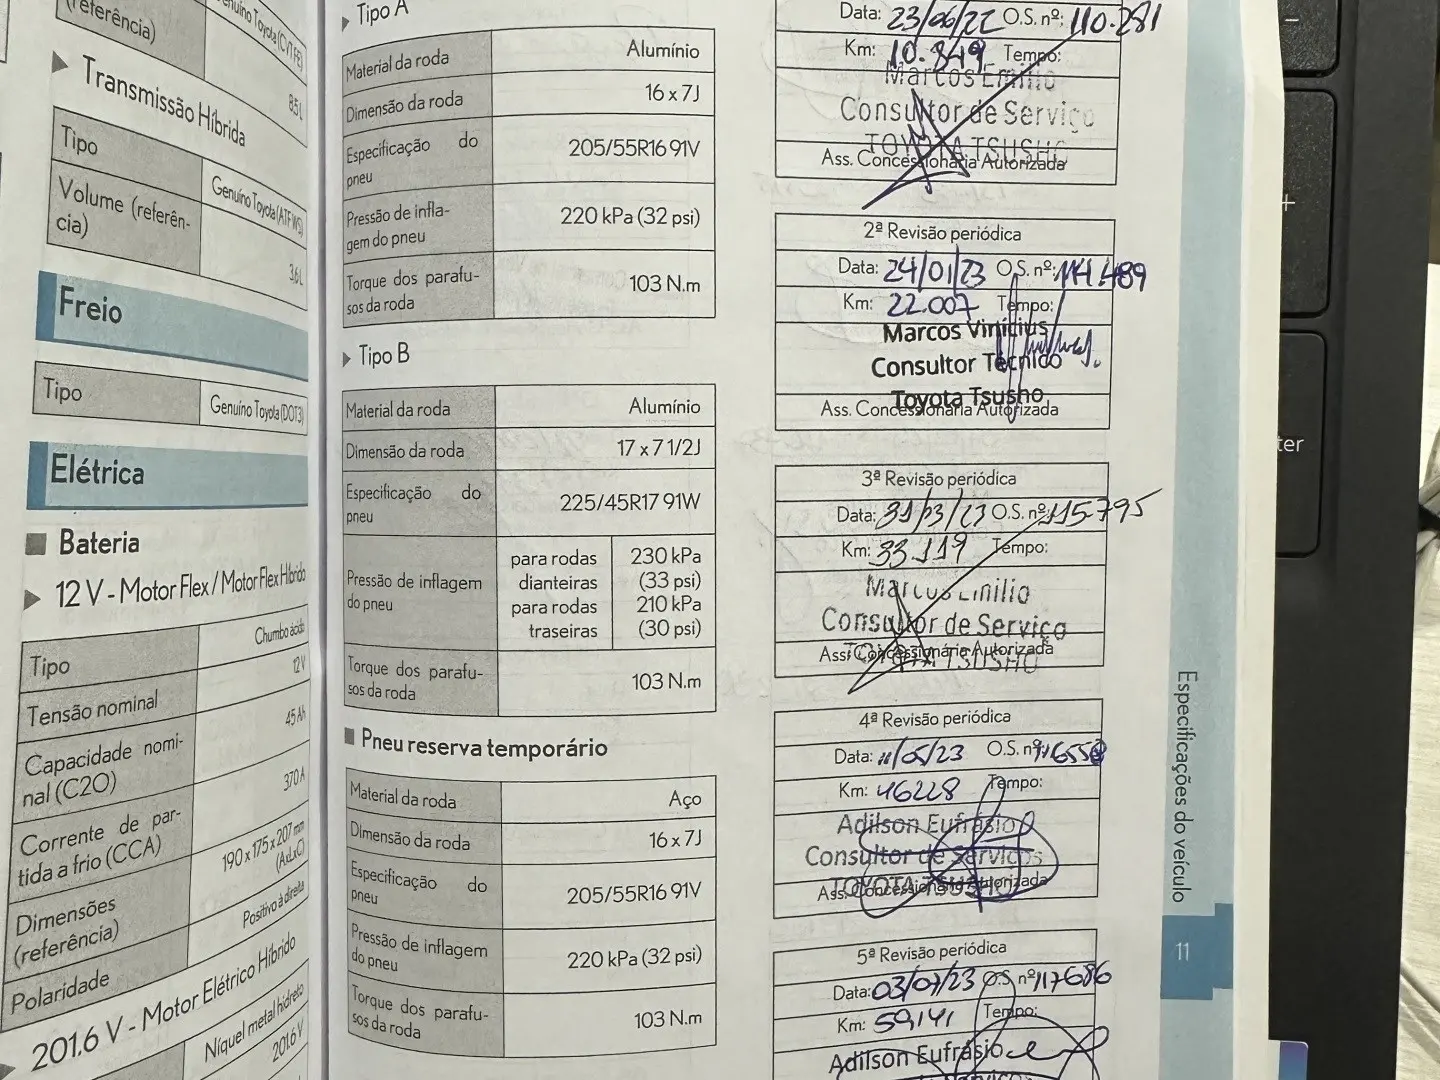 (referência)
Genuíno Toyota (CVTF FE)
8.5 L
Transmissão Híbrida
Tipo
Genuíno Toyota (ATF WS)
Volume (referên-
cia)
3.6 L
Freio
Tipo
Genuíno Toyota (DOT3)
Elétrica
Bateria
12 V - Motor Flex / Motor Flex Híbrido
Tipo
Chumbo ácido
Tensão nominal
12 V
Capacidade nomi-
nal (C20)
45 Ah
Corrente de par-
tida a frio (CCA)
370 A
Dimensões
(referência)
190 x 175 x 207 mm
(AxLxC)
Polaridade
Positivo à direita
201.6 V - Motor Elétrico Híbrido
Níquel metal hidreto
201.6 V
Tipo A
Material da roda
Alumínio
Dimensão da roda
16 x 7J
Especificação do
pneu
205/55R16 91V
Pressão de infla-
gem do pneu
220 kPa (32 psi)
Torque dos parafu-
sos da roda
103 N.m
Tipo B
Material da roda
Alumínio
Dimensão da roda
17 x 7 1/2J
Especificação do
pneu
225/45R17 91W
Pressão de inflagem
do pneu
para rodas
dianteiras
230 kPa
(33 psi)
para rodas
traseiras
210 kPa
(30 psi)
Torque dos parafu-
sos da roda
103 N.m
Pneu reserva temporário
Material da roda
Aço
Dimensão da roda
16 x 7J
Especificação do
pneu
205/55R16 91V
Pressão de inflagem
do pneu
220 kPa (32 psi)
Torque dos parafu-
sos da roda
103 N.m
Data: 23/06/22 O.S. nº: 110.281
Km: 10.849 Tempo:
Marcos Emilio
Consultor de Serviço
TOYOTA TSUSHO
Ass. Concessionária Autorizada
2ª Revisão periódica
Data: 24/01/23 O.S. nº: 114.489
Km: 22.007 Tempo:
Marcos Vinícius
Consultor Técnico
Toyota Tsusho
Ass. Concessionária Autorizada
3ª Revisão periódica
Data: 31/03/23 O.S. nº: 115.795
Km: 33.119 Tempo:
Marcos Emilio
Consultor de Serviço
TOYOTA TSUSHO
Ass. Concessionária Autorizada
4ª Revisão periódica
Data: 11/05/23 O.S. nº
Km: 46228 Tempo:
Adilson Eufrásio
Consultor de Serviços
TOYOTA TSUSHO
Ass. Concessionária Autorizada
5ª Revisão periódica
Data: 03/07/23 O.S. nº 117686
Km: 59141 Tempo:
Adilson Eufrásio
Especificações do veículo
11